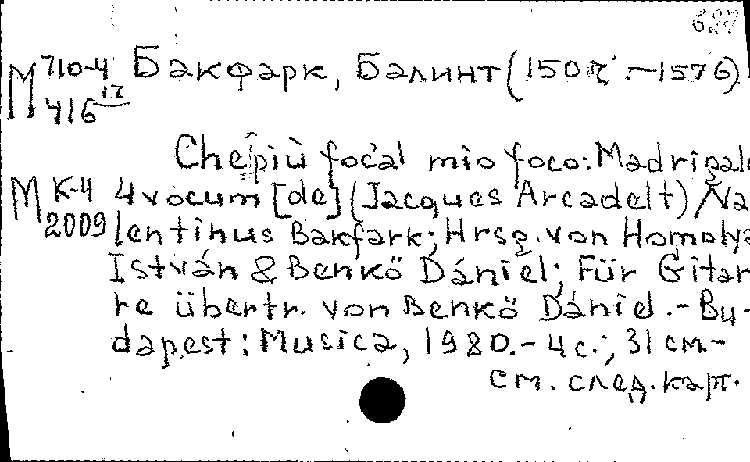 М 710-4 Бакфарк, Балинт (1507 – 1576)
416 17
Chepiù focal mio foco: Madrigale
М К-4 4 vocum [de] (Jacques Arcadelt) / Va
2009 lentinus Bakfark; Hrsg. von Homolya
István & Benkö Dániel; Für Gitar
re übertr. von Benkö Dániel. - Bu-
dapest: Musica, 1980. - 4 с.; 31 см. -
См. след. карт.